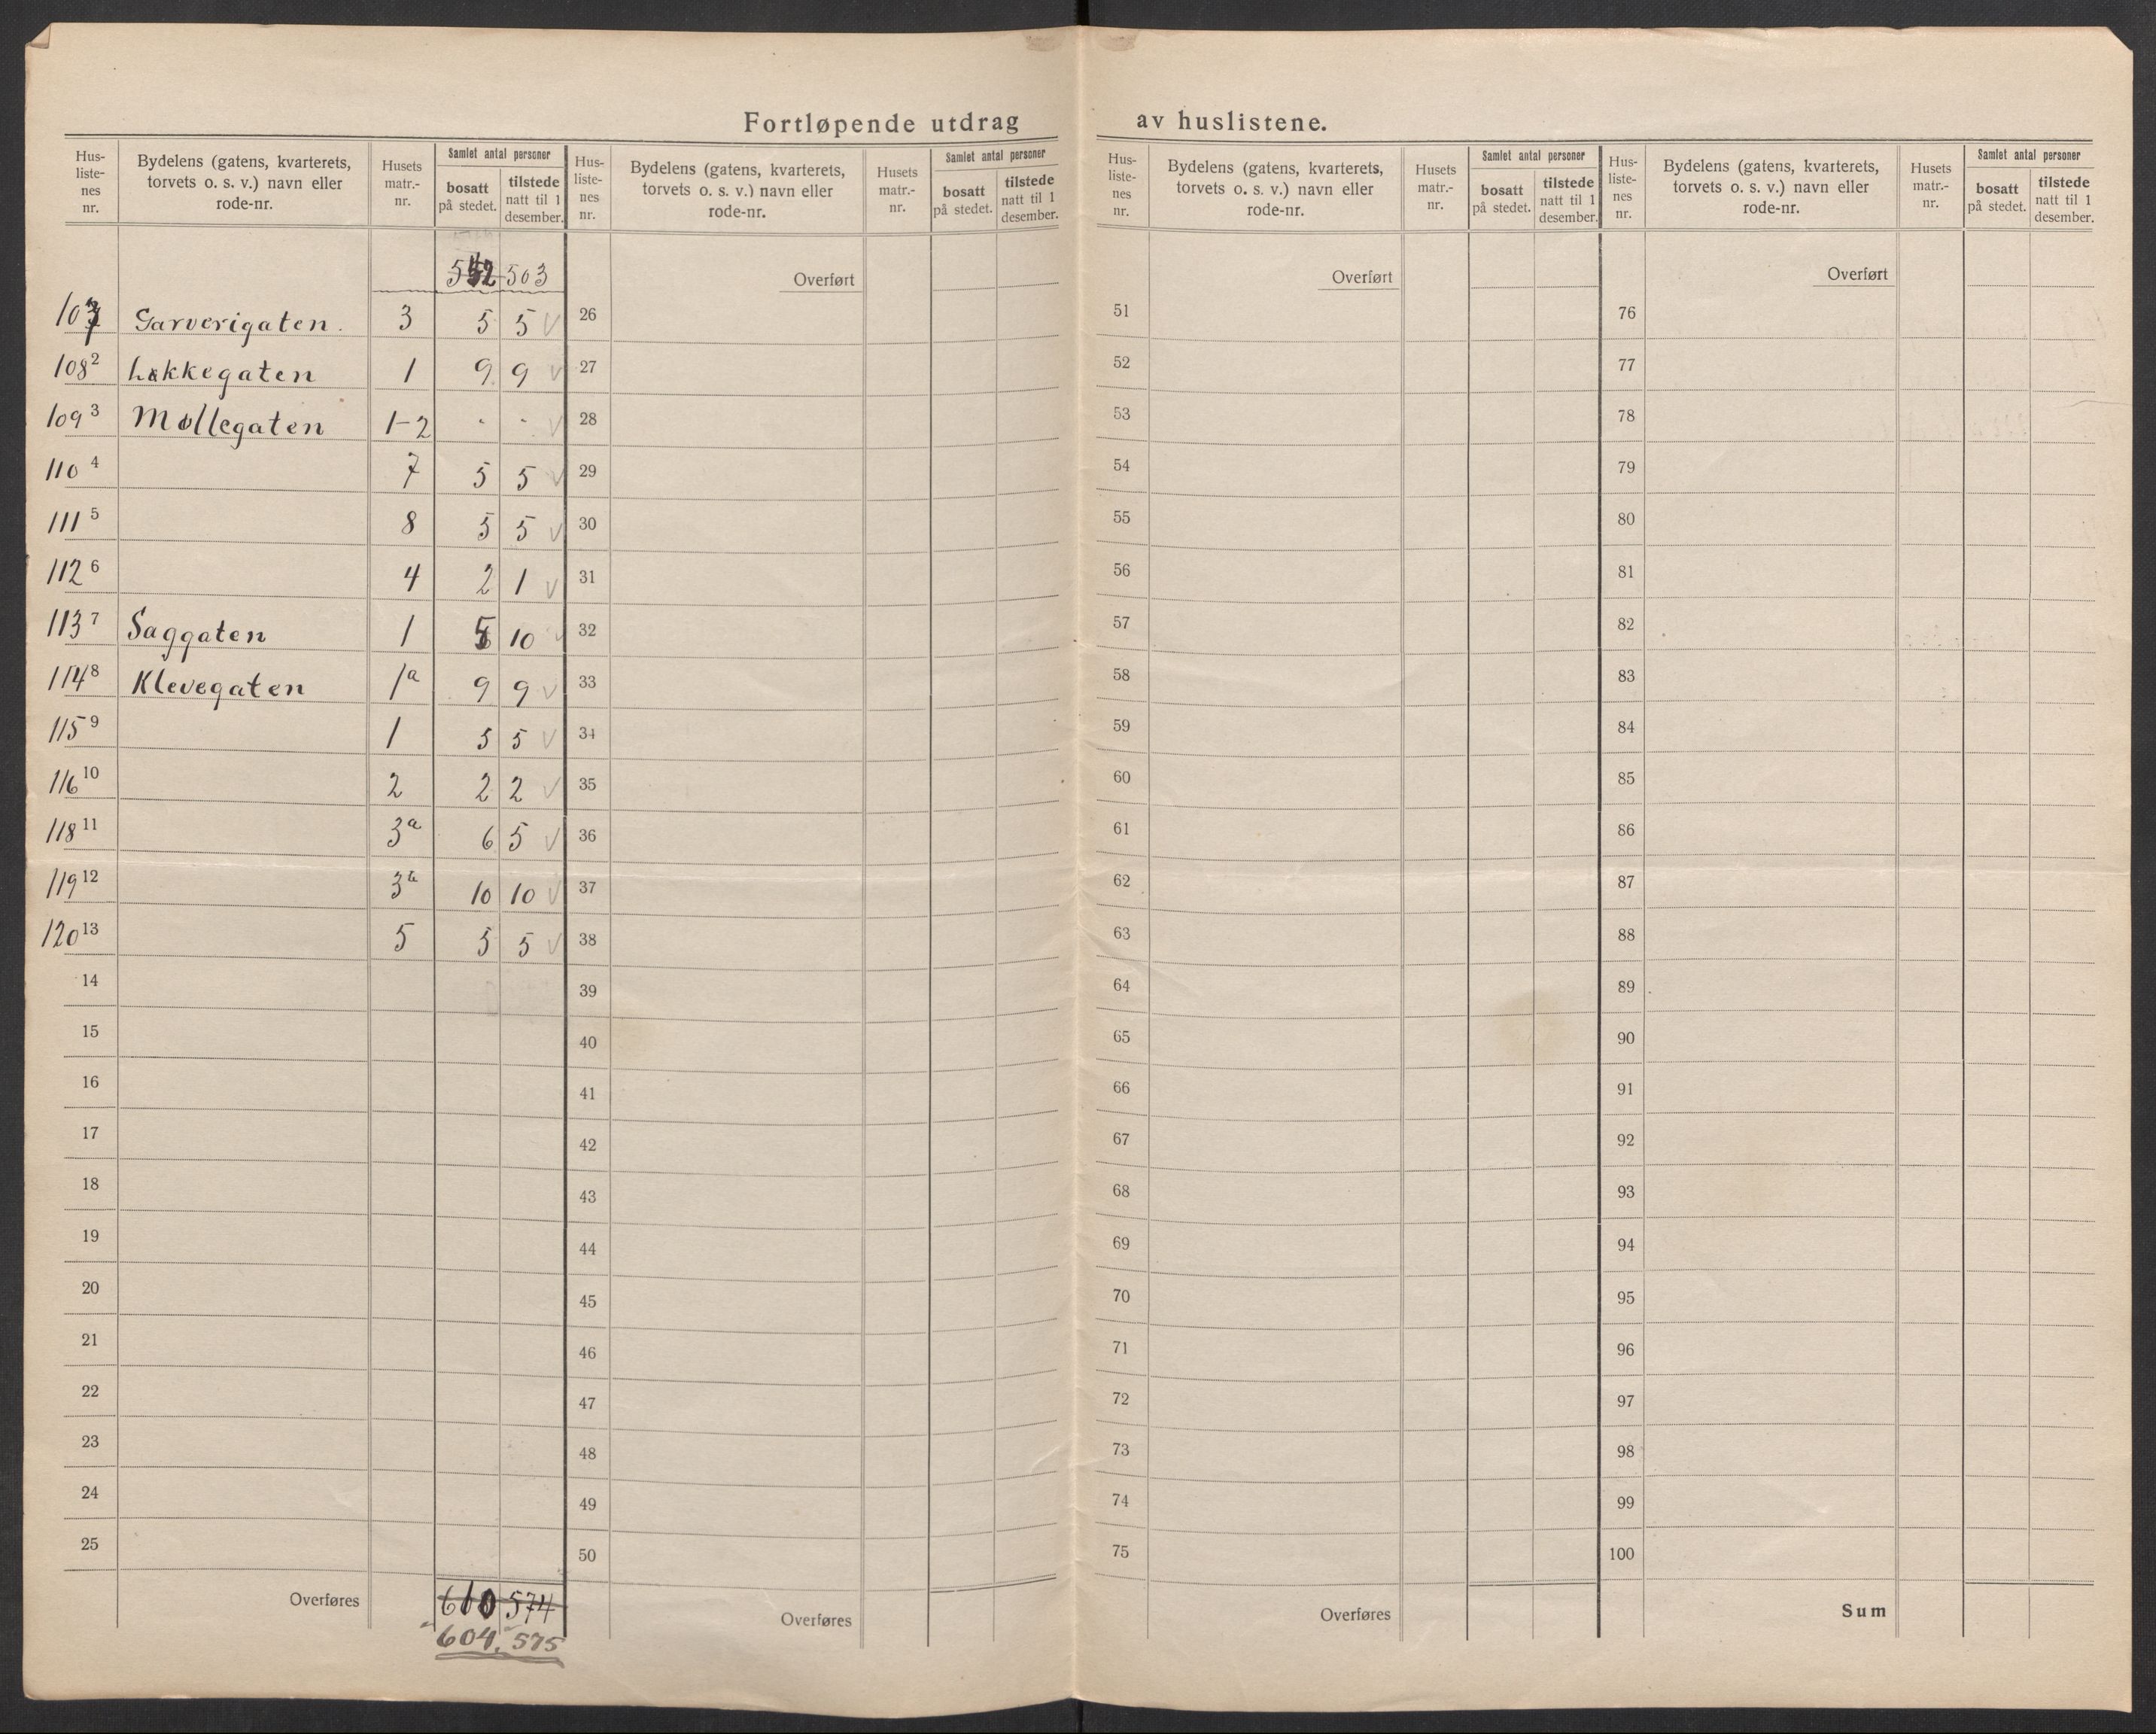 Fortløpende utdrag av huslistene.
Hus-listenes nr. | Bydelens (gatens, kvarterets, torvets o. s. v.) navn eller rode-nr. | Husets matr.-nr. | Samlet antal personer bosatt på stedet. | tilstede natt til 1 desember.
503
107 Garverigaten. 3 5 5 v
108 2 Løkkegaten 1 9 9 v
109 3 Møllegaten 1-2 - - v
110 4 7 5 5 v
111 5 8 5 5 v
112 6 4 2 1 v
113 7 Saggaten 1 10 v
114 8 Klevegaten 1a 9 9 v
115 9 1 5 5 v
116 10 2 2 2 v
118 11 3a 6 5 v
119 12 3a 10 10 v
120 13 5 5 5 v
14
15
16
17
18
19
20
21
22
23
24
25
Overføres 610 574
604. 575
Hus-listenes nr. | Bydelens (gatens, kvarterets, torvets o. s. v.) navn eller rode-nr. | Husets matr.-nr. | Samlet antal personer bosatt på stedet. | tilstede natt til 1 desember.
Overført
26
27
28
29
30
31
32
33
34
35
36
37
38
39
40
41
42
43
44
45
46
47
48
49
50
Overføres
Hus-listenes nr. | Bydelens (gatens, kvarterets, torvets o. s. v.) navn eller rode-nr. | Husets matr.-nr. | Samlet antal personer bosatt på stedet. | tilstede natt til 1 desember.
Overført
51
52
53
54
55
56
57
58
59
60
61
62
63
64
65
66
67
68
69
70
71
72
73
74
75
Overføres
Hus-listenes nr. | Bydelens (gatens, kvarterets, torvets o. s. v.) navn eller rode-nr. | Husets matr.-nr. | Samlet antal personer bosatt på stedet. | tilstede natt til 1 desember.
Overført
76
77
78
79
80
81
82
83
84
85
86
87
88
89
90
91
92
93
94
95
96
97
98
99
100
Sum